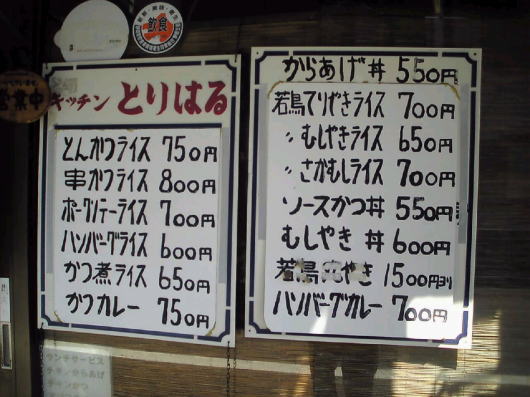 飲食
営業中
キッチン とりはる
とんかつライス 750円
串かつライス 800円
ポークソテーライス 700円
ハンバーグライス 600円
かつ煮ライス 650円
かつカレー 750円
からあげ丼 550円
若鳥てりやきライス 700円
〃 むしやきライス 650円
〃 さかむしライス 700円
ソースかつ丼 550円
むしやき丼 600円
若鳥 やき 1500円より
ハンバーグカレー 700円
ランチサービス
チキンからあげ
チキンかつ